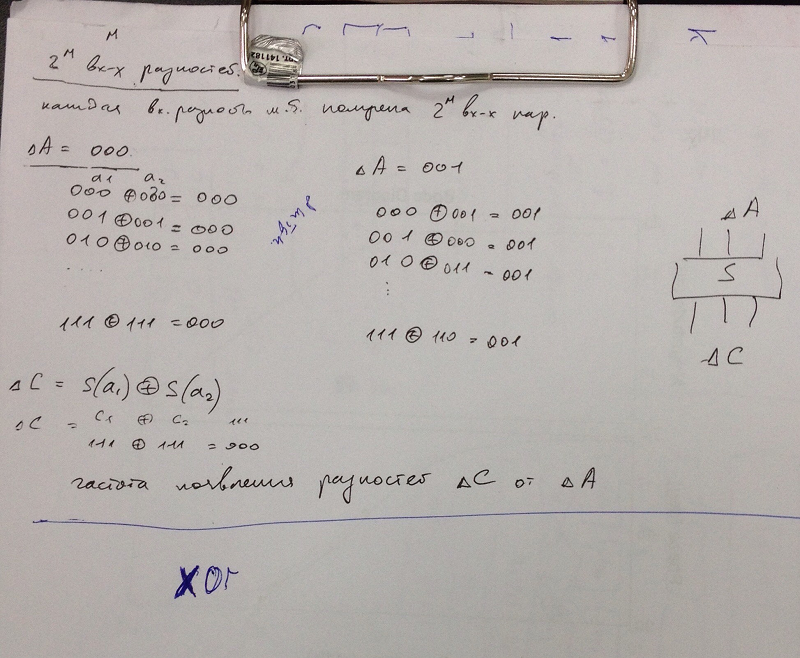 м
2ᴹ вх-х разностей.
каждая вх. разность м.б. получена 2ᴹ вх-х пар.
ΔA = 000
a1 a2
000 ⊕ 000 = 000
001 ⊕ 001 = 000
010 ⊕ 010 = 000
....
111 ⊕ 111 = 000
ΔA = 001
000 ⊕ 001 = 001
001 ⊕ 000 = 001
010 ⊕ 011 = 001
⋮
111 ⊕ 110 = 001
ΔA
S
ΔC
ΔC = S(a1) ⊕ S(a2)
ΔC = c1 ⊕ c2
111 ⊕ 111 = 000
частота появления разностей ΔC от ΔA
xor
141182